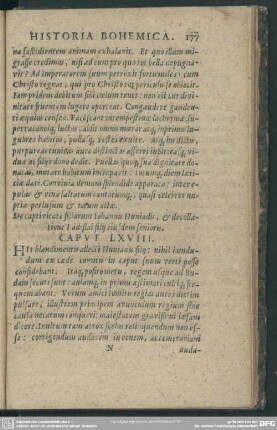 HISTORIA BOHEMICA. 177
na fastidientem animam exhalavit. Et quo illum mi-
grasse credimus, nisi ad eum pro quo tot bella depugna-
vit? Ad Imperatorem suum perrexit fortis miles: cum
Christo regnat, qui pro Christo tot periculis se obiecit.
Iam pridem debitum sibi coelum tenet: non est cur divi-
nitate fruentem lugere oporteat. Congaudere gauden-
ti æquius censeo. Facessant intempestivæ lachrymæ
superracaneus, luctus, abiit omnis mœror atq, inprimis lu-
gubres habitus, pullasq, vestes exuite. Atq, hæc dicto,
purpureas tunicas auro distinctas afferri iubet: easq, vi-
duæ ac filijs dono dedit. Puellis quoq, sua dignitate do-
natis, mutare habitum increparit: totumq, diem læti-
ciæ dari. Convivia demum splendide apparata: intere-
pulas & vina saltatum cantatumq, quasi celebres nu-
ptiæ per lusum & iocum actæ.
De captivitate filiorum Iohannis Huniadis, & decolla-
tione Ladislai filij eiusdem senioris.
CAPVT LXVIII.
His blandimentis allecti Huniani filij: nihil iamdu-
dum ex cæde comitis in caput suum verti posse
confidebant. Itaq, posttrometu, regem usque ad Bu-
dam secuti sunt: aulamq, in primis assimati cultiq, fre-
quentabant. Verum amici comitis regias aures dietim
pulsare, illustrem principem avunculum regium sine
causa necatum conqueri: maiestatem gravissimè læsam
dicere. Inultum tam atrox scelus relinquendum non es-
se: corrigendum audacem iuvenem, ac temerariam
N auda-